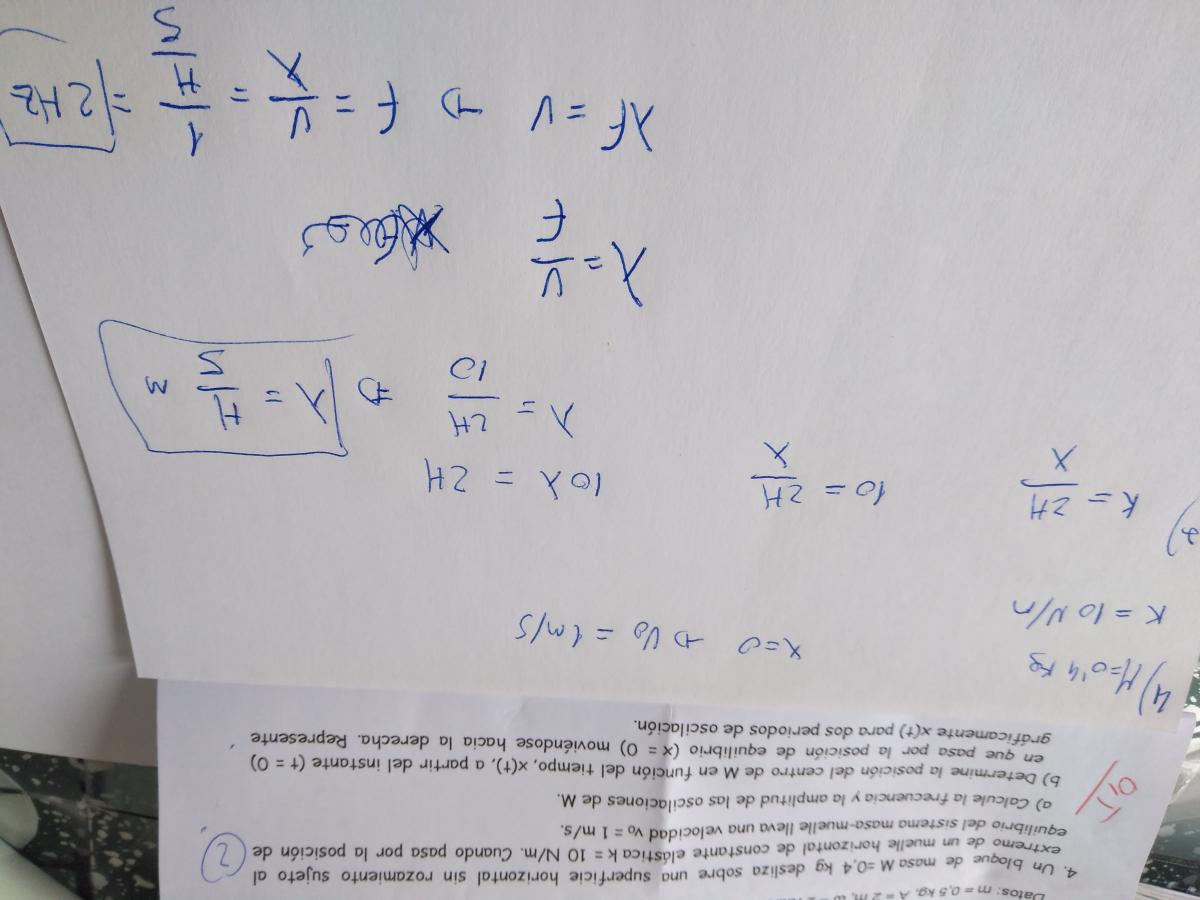 Datos: m = 0,5 kg. A = 2 m,
4. Un bloque de masa M =0,4 kg desliza sobre una superficie horizontal sin rozamiento sujeto al
extremo de un muelle horizontal de constante elástica k = 10 N/m. Cuando pasa por la posición de
equilibrio del sistema masa-muelle lleva una velocidad v₀ = 1 m/s.
a) Calcule la frecuencia y la amplitud de las oscilaciones de M.
b) Determine la posición del centro de M en función del tiempo, x(t), a partir del instante (t = 0)
en que pasa por la posición de equilibrio (x = 0) moviéndose hacia la derecha. Represente
gráficamente x(t) para dos periodos de oscilación.
2
4) M=0'4 kg x=0 → V₀ = 1m/s
K = 10 N/m
a) K = 2π/λ 10 = 2π/λ 10λ = 2π
λ = 2π/10 ⇒ λ = π/5 m
λ = v/f
λf = v → f = v/λ = 1/(π/5) = 2Hz